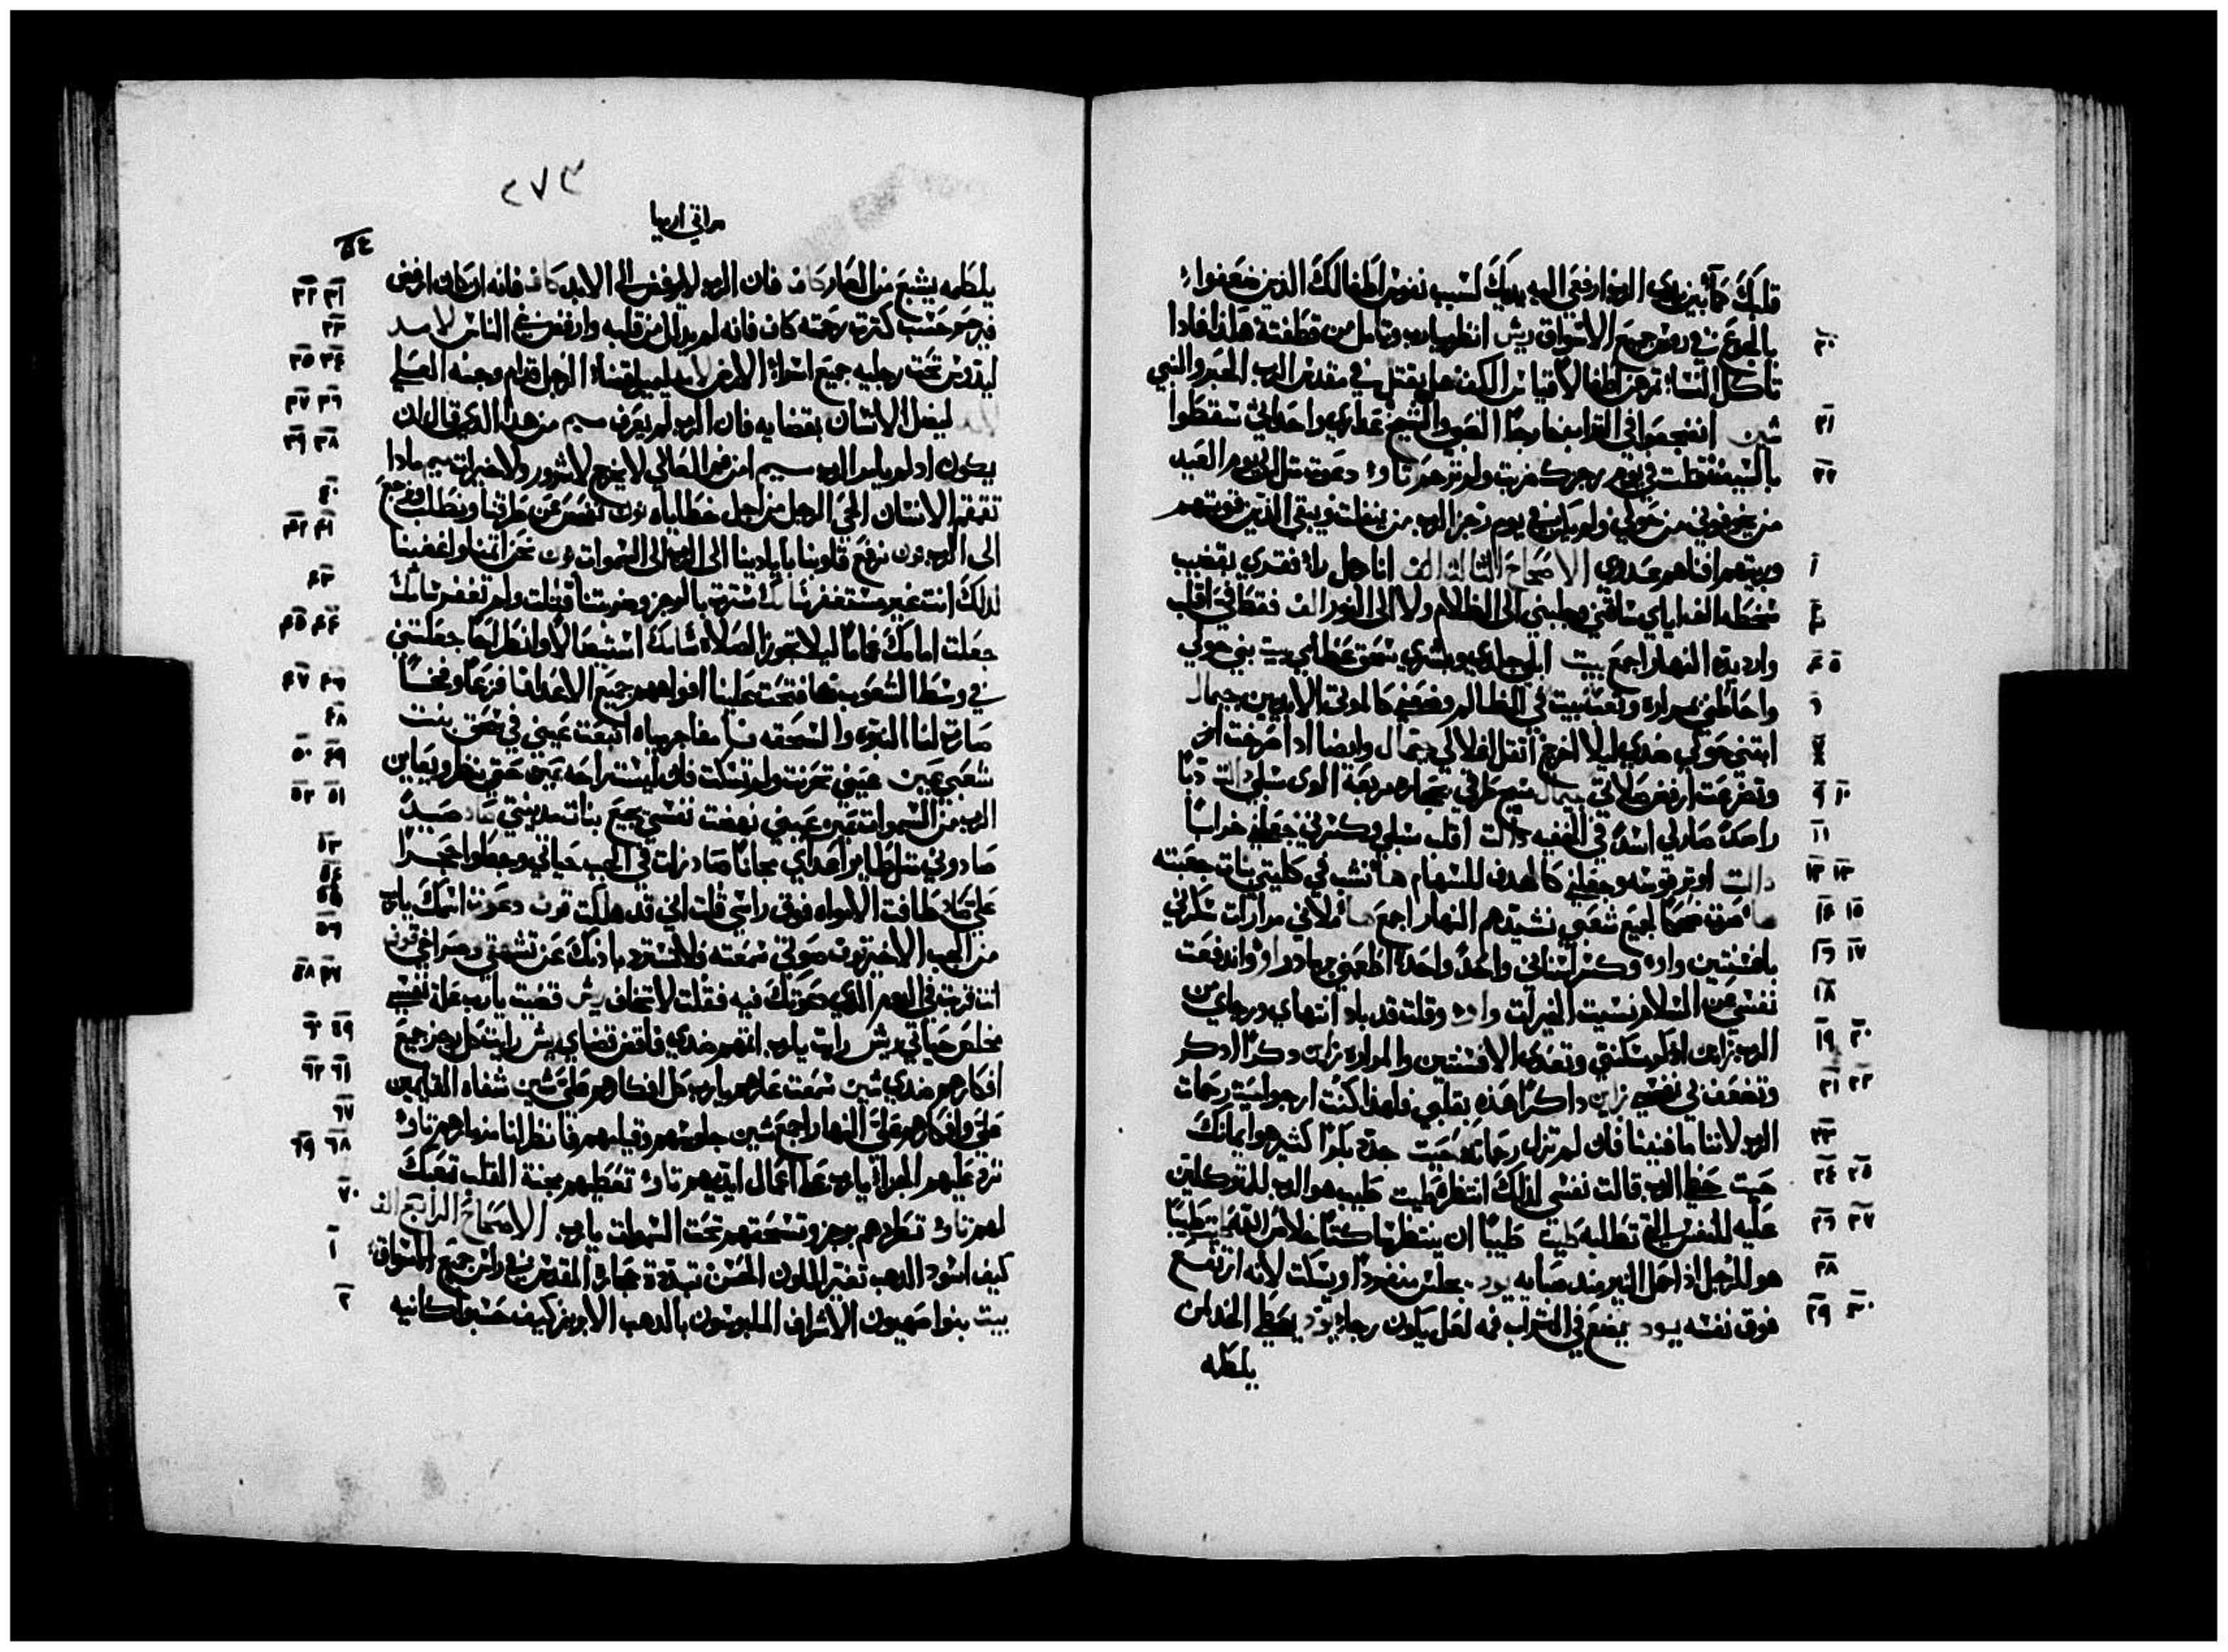 قلبك كمآء بين يدي الرب ارفعي اليه يديك لسبب نفوس اطفالك الذين ضعفوا
بالجوع في روس جميع الاسواق ريش انظر يارب وتامل من قطفته هكذا فاذا
تاكل النسا ثمرهن اطفالا يقتل في مقدس الرب الحبر والنبي
٢٠
شين انضجعوا في القرا خارجًا الصبي والشيخ عذاري واحداثي سقطوا
٢١
بالسيف قتلت في يوم رجزك ضربت ولم ترحم تاو دعوت مثل الي يوم العيد
٢٢
من يخوفوني من حولي ولم يكن في يوم رجز الرب من ينفلت ويبقي الذين قويتهم
وربيتهم افناهم عدوي الاصحاح الثالث الف انا رجل راا فقري بقضيب
١
سخطه الف اياي ساقني وجلبني الي الظلام ولا الي النور الف فقط في اقلب
وادار يده النهار اجمع بيت ابلي جلدي وبشري سحق عظامي بيت بني حولي
٥ ٤
واحاطني بمراره وتعب بيت في الظالم وضعني كالموتي الابديين جيمال
٦
ابتني حولي ضدي ليلا اخرج اثقل اغلالي جيمال وايضا اذا صرخت
٧
وتضرعت ارفض صلاتي جيمال سيج طرقي بحجاره مربعه الوي سبلي دالت دبًا
١٠ ٩
راصدًا صار لي اسدًا في الخفيه دالت اقلب سبلي وكسرني جعلني خرابًا
١١
دالت اوتر قوسه وجعلني كالهدف للسهام ها انشب في كليتي بنات جعبته
١٣ ١٢
ها صرت ضحكًا لجميع شعبي نشيدهم النهار اجمع ها املاني مرارات سكرني
١٥ ١٤
بافسنتين واو وكسر اسناني واحدًا واحدًا اطعمني رمادًا واو واندفعت
١٧ ١٦
نفسي عن السلام نسيت الخيرات واو وقلت قد باد انتهاي ورجاي من
١٨
الرب زاين اذكر مسكنتي وتعدي الافسنتين والمراره زاين دكرًا ادكر
٢٠ ١٩
وتضعف في نفسي زاين داكرًا هذه بقلبي فلهذا كنت ارجو حيت رحمات
٢٢ ٢١
الرب لاننا ما فنينا فان لم تزل رحماته حيت جدد بكرًا كثير هو ايمانك
٢٣
حيت حظي الرب قالت نفسي لذلك انتظره طيت طيب هو الرب للمتوكلين
٢٥ ٢٤
عليه للنفس التي تطلبه طيت طيبًا ان ينتظر ساكتًا خلاص الله طيت طيبًا
٢٧ ٢٦
هو للرجل اذا حمل النير منذ صبايه يود يجلس منفردًا ويسكت لانه ارتفع
٢٨
فوق نفسه يود يضع في التراب فمه لعل يكون رجاء يود يعطي الخد لمن
٣٠ ٢٩
يلطمه
٢٧٣
مراثي ارميا
يلطمه يشبع من العار كاف فان الرب لا يرفض الي الابد كاف فانه ان كان ارفض
٣٢ ٣١
فيرحم حسب كثرت رحمته كاف فانه لم يذلل من قلبه وارفض بني الناس لامد
٣٣
ليدوس تحت رجليه جميع اسراء الارض لامد ليميل قضاء الرجل قدام وجه العلي
٣٥ ٣٤
لامد ليضل الانسان بقضايه فان الرب لم يعرف ميم من هذا الذي قال ان
٣٧ ٣٦
يكون اذ لم يامر الرب ميم امن فم العالي لا يخرج لا شرور ولا خيرات ميم ماذا
٣٩ ٣٨
تقمقم الانسان الحي الرجل من اجل خطاياه نون نفحص عن طرقنا ونطلب ونرجع
٤٠
الي الرب نون نرفع قلوبنا بايادينا الي الرب الي السموات نون نحن اثمنا واغضبنا
٤٢ ٤١
لذلك انت غير مستغفر سامك سترت بالرجز وضربتنا قتلت ولم تغفر سامك
٤٣
جعلت امامك غمامًا ليلا تجوز الصلاه سامك استيصالًا وانظراحًا جعلتني
٤٥ ٤٤
في وسط الشعوب فا فتحت علينا افواههم جميع الاعداء فا فزعًا وفخًا
٤٧ ٤٦
صارت لنا النبوه والسحقه فا مفاجر مياه انبعت عيني في سحق بنت
٤٨
شعبي عين عيني تحزنت ولم تسكت فان ليست راحه عين حتي ينظر ويعاين
٥٠ ٤٩
الرب من السموات عين عيني نهضت نفسي جميع بنات مدينتي صاد صيدًا
٥٢ ٥١
صادوني مثل طاير اعداي مجانًا صاد زلت في الجب حياتي وجعلوا حجرًا
٥٣
علي صاد طافت الامواه فوق راسي قلت اني قد هلكت قوف دعوت اسمك يارب
٥٤
٥٥
من الجب الاخير قوف صوتي سمعت فلا تسترد باذنك عن تنهدي وصراخي قوف
٥٦
اقتربت في اليوم الذي دعوتك فيه فقلت لا تخاف ريش قضيت يارب علة نفسي
٥٨ ٥٧
مخلص حياتي ريش رايت يارب اثمهم ضدي فاقض قضاي ريش رايت كل رجز جميع
٦٠ ٥٩
افكارهم ضدي شين سمعت عارهم يارب كل افكارهم علي شين شفاه القايمين
٦٢ ٦١
علي وافكارهم علي النهار اجمع شين جلوسهم وقيامهم فانظر انا مزمارهم تاو
٦٧
ترد عليهم الجزاء يارب علي اعمال ايديهم تاو تعطيهم محنة القلب تعبك
٦٩ ٦٨
لهم تاو تطردهم برجز وتسحقهم تحت السموات يارب الاصحاح الرابع الف
٧٠
كيف اسود الذهب تغير اللون الحسن تبددة حجارة المقدس في راس جميع الاسواق
١
بيت بنوا صهيون الاشراف الملبوسون بالذهب الابريز كيف حسبوا كانيه
٢